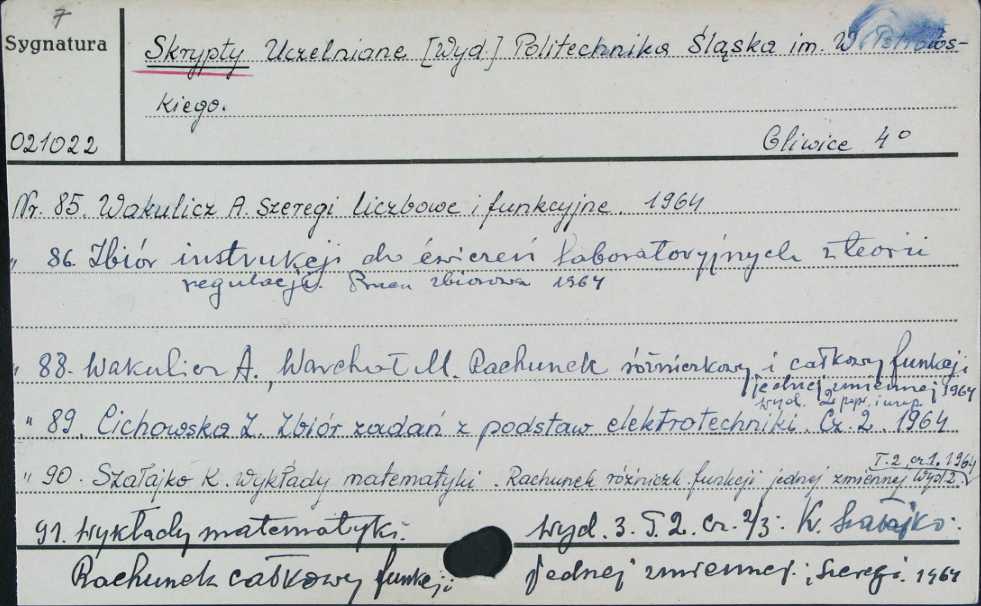 7
Sygnatura
Skrypty Uczelniane [Wyd.] Politechnika Śląska im. W. Pstrows-
kiego.
021022
Gliwice 4°
Nr. 85. Wakulicz A. Szeregi liczbowe i funkcyjne. 1964
" 86. Zbiór instrukcji do ćwiczeń laboratoryjnych z teorii
regulacji. Praca zbiorowa 1964
" 88. Wakulicz A., Warchoł M. Rachunek różniczkowy i całkowy funkcji
jednej zmiennej 1964
wyd. 2 popr. i uzup.
" 89. Cichowska Z. Zbiór zadań z podstaw elektrotechniki. Cz. 2. 1964
T. 2, cz 1. 1964
" 90. Szałajko K. Wykłady matematyki. Rachunek różniczk. funkcji jednej zmiennej Wyd 2.
91. Wykłady matematyki. Wyd. 3. T. 2. cz. 2/3. K. Szałajko.
Rachunek całkowy funkcji jednej zmiennej. Szeregi. 1964